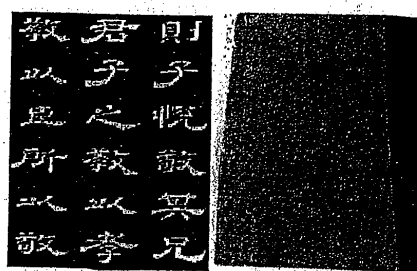 則子悅敬其兄
君子之教以孝
教以臣所以敬